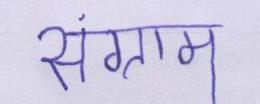 संग्राम